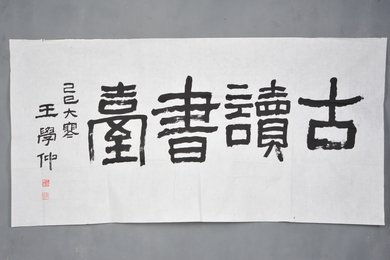 古讀書臺
己巳大寒
王學仲